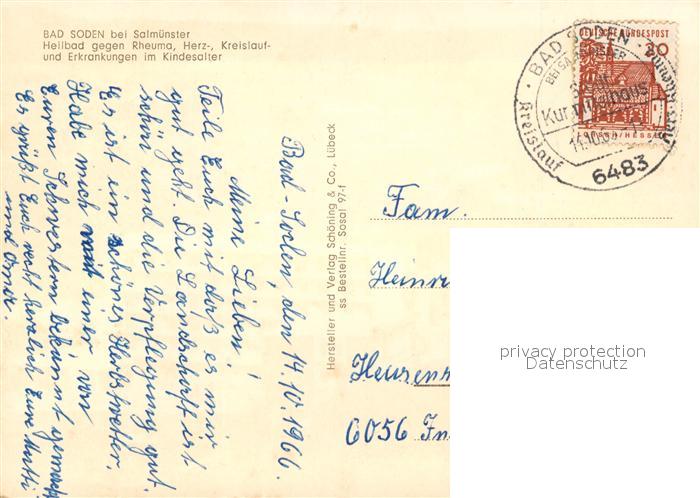 BAD SODEN bei Salmünster
Heilbad gegen Rheuma, Herz-, Kreislauf-
und Erkrankungen im Kindesalter
Bad-Soden, den 14.10.1966.
Meine Lieben!
Teile Euch mit daß es mir
gut geht. Die Landschaft ist
schön und die Verpflegung gut.
Es ist ein schönes Herbstwetter.
Habe mich mit einer von
Euren Schwestern bekannt gemacht
Es grüßt Euch recht herzlich Eure Mutti
und Oma.
Hersteller und Verlag Schöning & Co., Lübeck
ss Bestellnr. Sosal 97-f
DEUTSCHE BUNDESPOST
20
HESSEN
BAD SODEN
BEI SALMÜNSTER
Kreislauf
14.10.66
6483
Fam.
Heinr
6056
privacy protection
Datenschutz